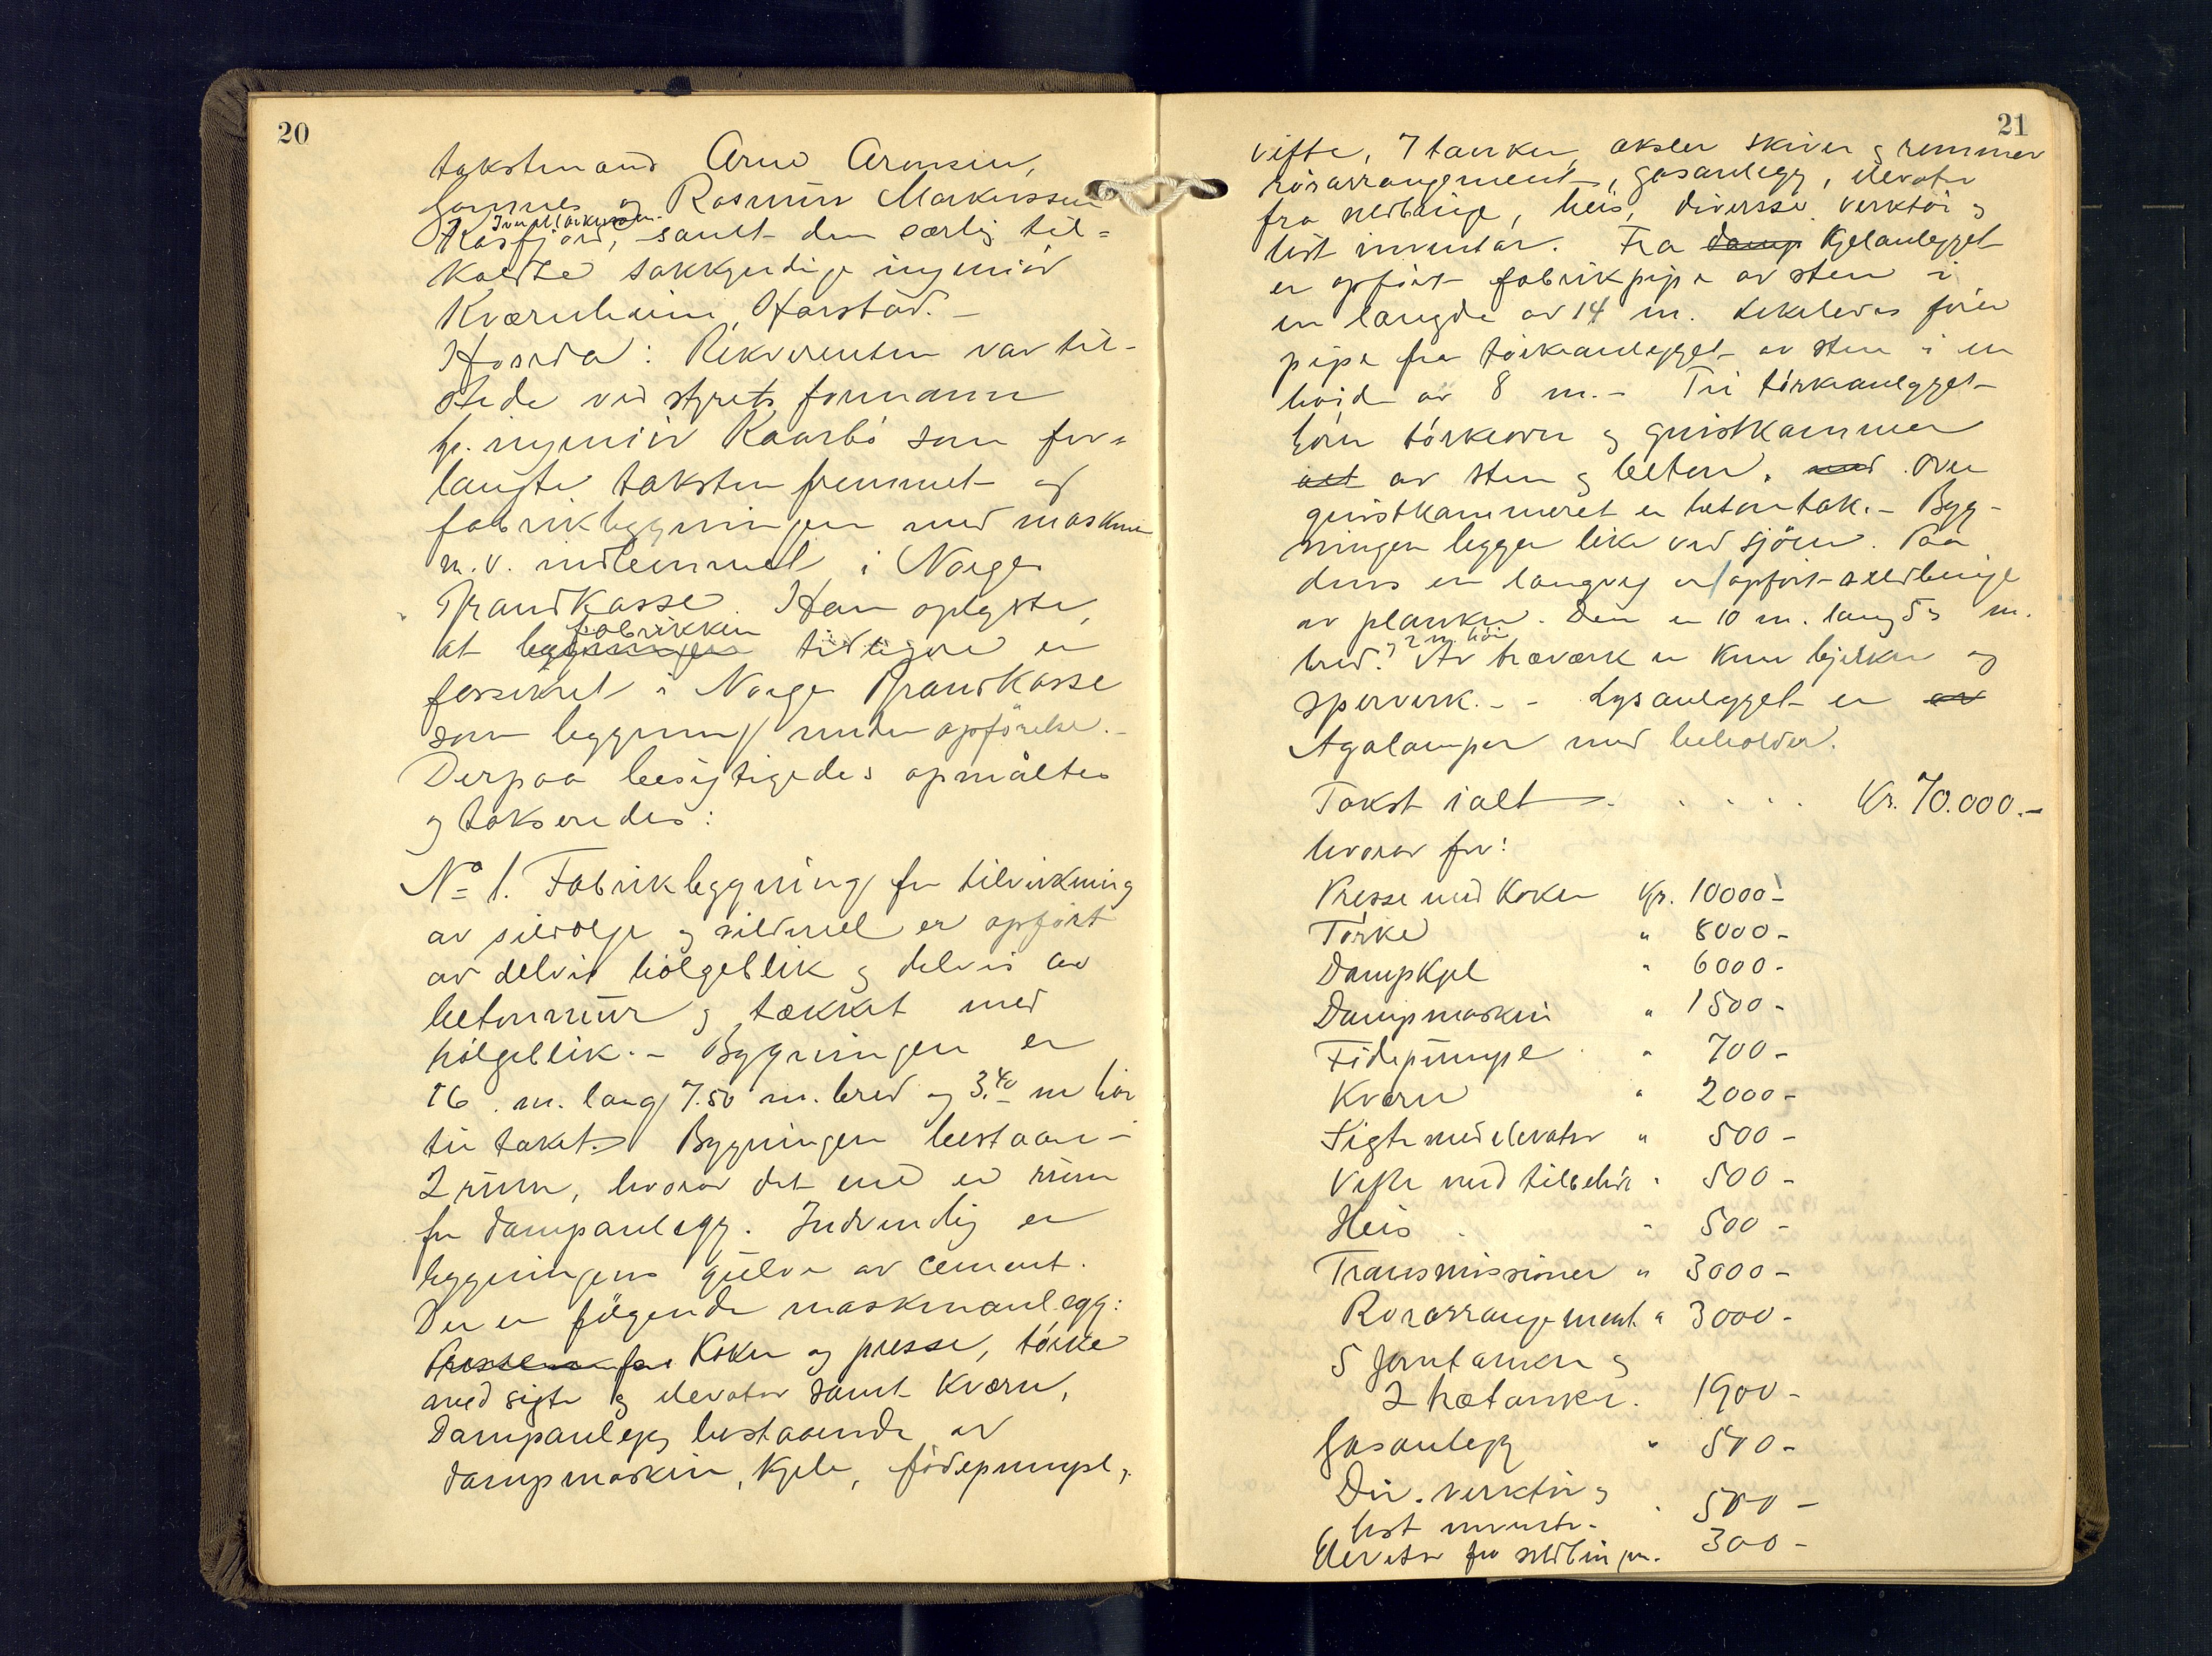 20
takstmand Arne Aronsen,
Gamnes og Rasmus Markussen
Kasfjord, samt den særlig til=
kaldte sakkyndige ingeniør
Kværnheim, Harstad. —
Hosrd: Rekvirenten var til-
stede ved styrets formann
hr. ingeniør Kaarbö som for=
langte taksten fremmet og
fabrikbygningen med maskiner
m.v. indlemmet i Norges
Brandkasse. Han oplyste,
at fabrikken tidligere er
forsikret i Norges Brandkasse
som bygning under opförelse. -
Derpaa besigtigedes opmåltes
og takseredes:
No 1. Fabrikbygning for tilvirkning
av sildolje og sildmel er opfört
av delvis bölgeblik og delvis av
betonmur og tækket med
bölgeblik. - Bygningen er
16 m. lang 7.50 m. bred og 3.40 m höi
til taket. Bygningen bestaar i
2 rum, hvorav det ene er rum
for dampanlegg. Indvendig er
bygningens gulve av cement.
Der er fölgende maskinanlegg:
Koker og presse, törke
med sigte og elevator samt kværn,
Dampanlegg bestaaende av
dampmaskin, kjele, födepumpe,
21
vifte, 7 tanker, aksler skiver og remmer
rörarrangement, gasanlegg, elevator
fra sildbinge, heis, diverse verktöi og
löst inventar. Fra damp kjelanlegget
er opfört fabrikpipe av sten i
en længde av 14 m. Likeledes förer
pipe fra törkeanlegget av sten i en
höide av 8 m. - Til törkeanlegget
hörer törkeovn og gnistkammer
alt av sten og beton, med over
gnistkammeret er betontak. - Byg-
ningen ligger like ved sjöen. Paa
dens ene langvæg er opfört sildbinge
av planker. Den er 10 m. lang 5 m.
bred og 2 m. höi. Av træværk er kun bjelker og
sperverk. - - Lysanlegget er av
Agalamper med beholder.
Takst ialt . . . . . Kr. 70.000.-
hvorav for:
Presse med koker Kr. 10000-
Törke " 8000-
Dampkjel " 6000-
Dampmaskin " 1500-
Födepumpe " 700-
Kværn " 2000-
Sigte med elevator " 500-
Vifte med tilbehör " 500-
Heis " 500-
Transmissioner " 3000-
Rörarrangement " 3000-
5 jerntanker og
2 trætanker. 1900-
Gasanlegg " 500-
Div. verktöi og
löst inventar " 500-
Elevator fra sildbingen. 300-